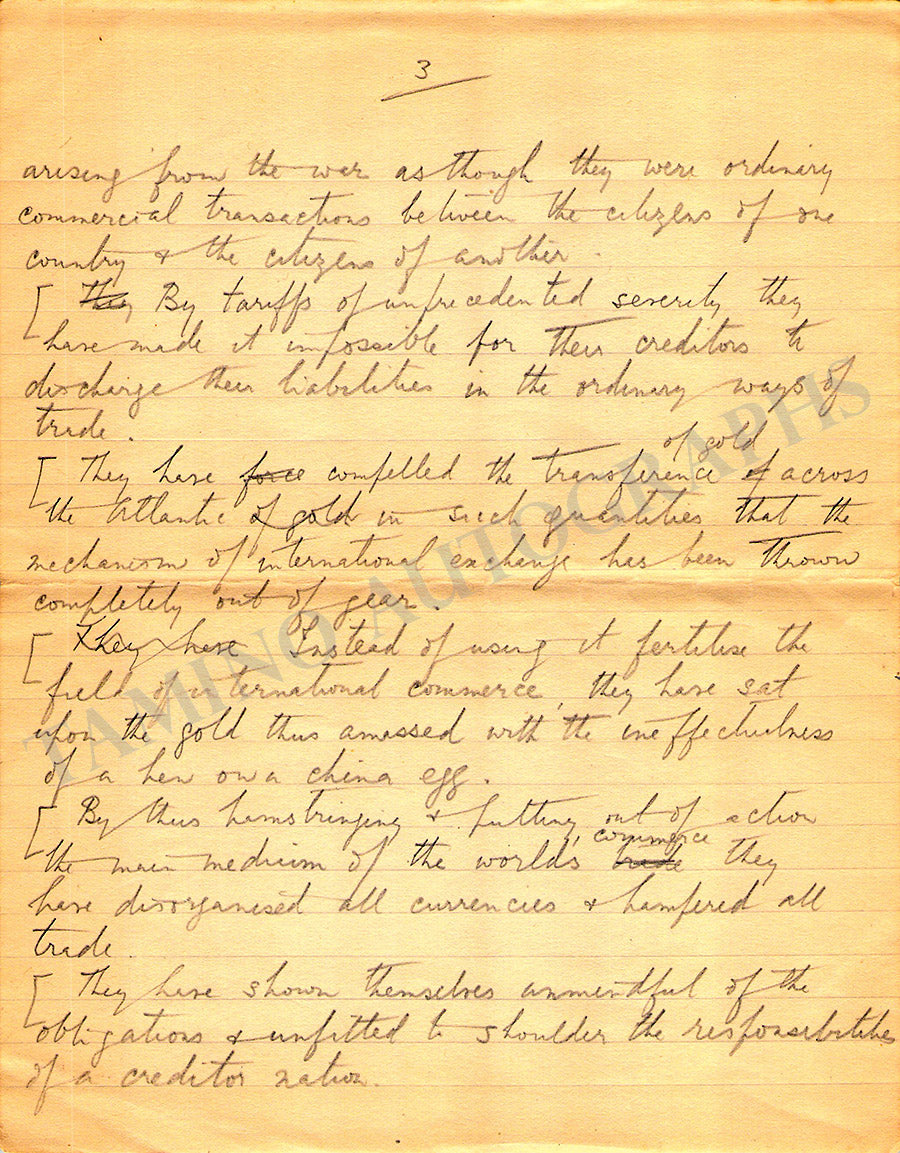 3
arising from the war as though they were ordinary
commercial transactions between the citizens of one
country & the citizens of another.
[ They By tariffs of unprecedented severity they
have made it impossible for their creditors to
discharge their liabilities in the ordinary ways of
trade.
of gold
[ They have force compelled the transference of across
the Atlantic of gold in such quantities that the
mechanism of international exchange has been thrown
completely out of gear.
[ They have Instead of using it fertilise the
field of international commerce, they have sat
upon the gold thus amassed with the ineffectulness
of a hen on a china egg.
[ By thus hamstringing & putting out of action
commerce
the main medium of the world's trade they
have disorganised all currencies & hampered all
trade.
[ They have shown themselves unmindful of the
obligations & unfitted to shoulder the responsibilities
of a creditor nation.
TAMINO AUTOGRAPHS